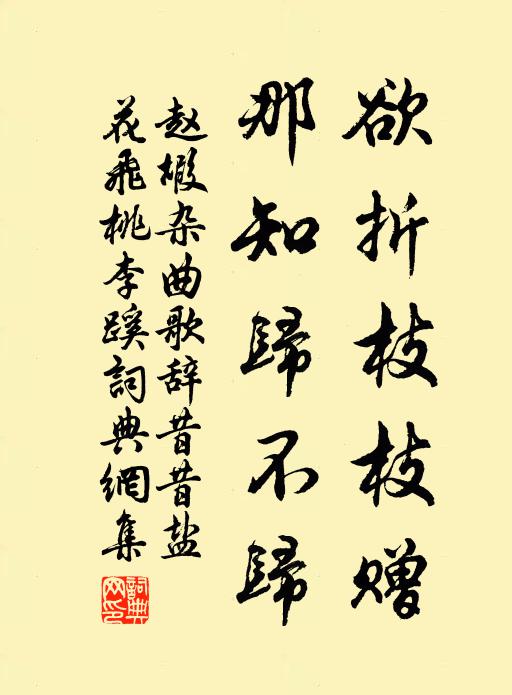 欲折枝枝赠
那知歸不歸
赵嘏杂曲歌辞昔昔盐
花飛桃李蹊詞典網集
詞典网印